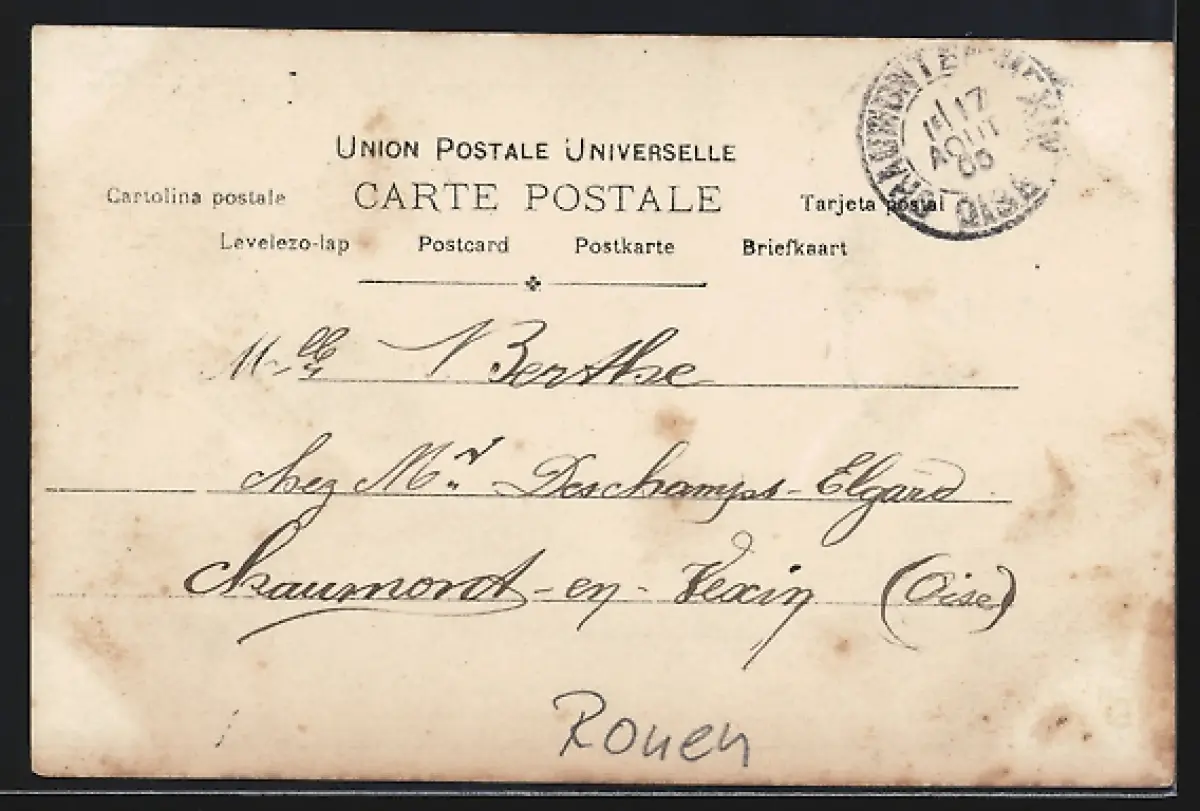 UNION POSTALE UNIVERSELLE
CARTE POSTALE
Cartolina postale Tarjeta postal
Levelezo-lap Postcard Postkarte Briefkaart
CHAUMONT EN VEXIN
17
AOUT
05
OISE
Mlle Berthe
chez Mr Deschamps-Elgard
Chaumont-en-Vexin (Oise)
Rouen